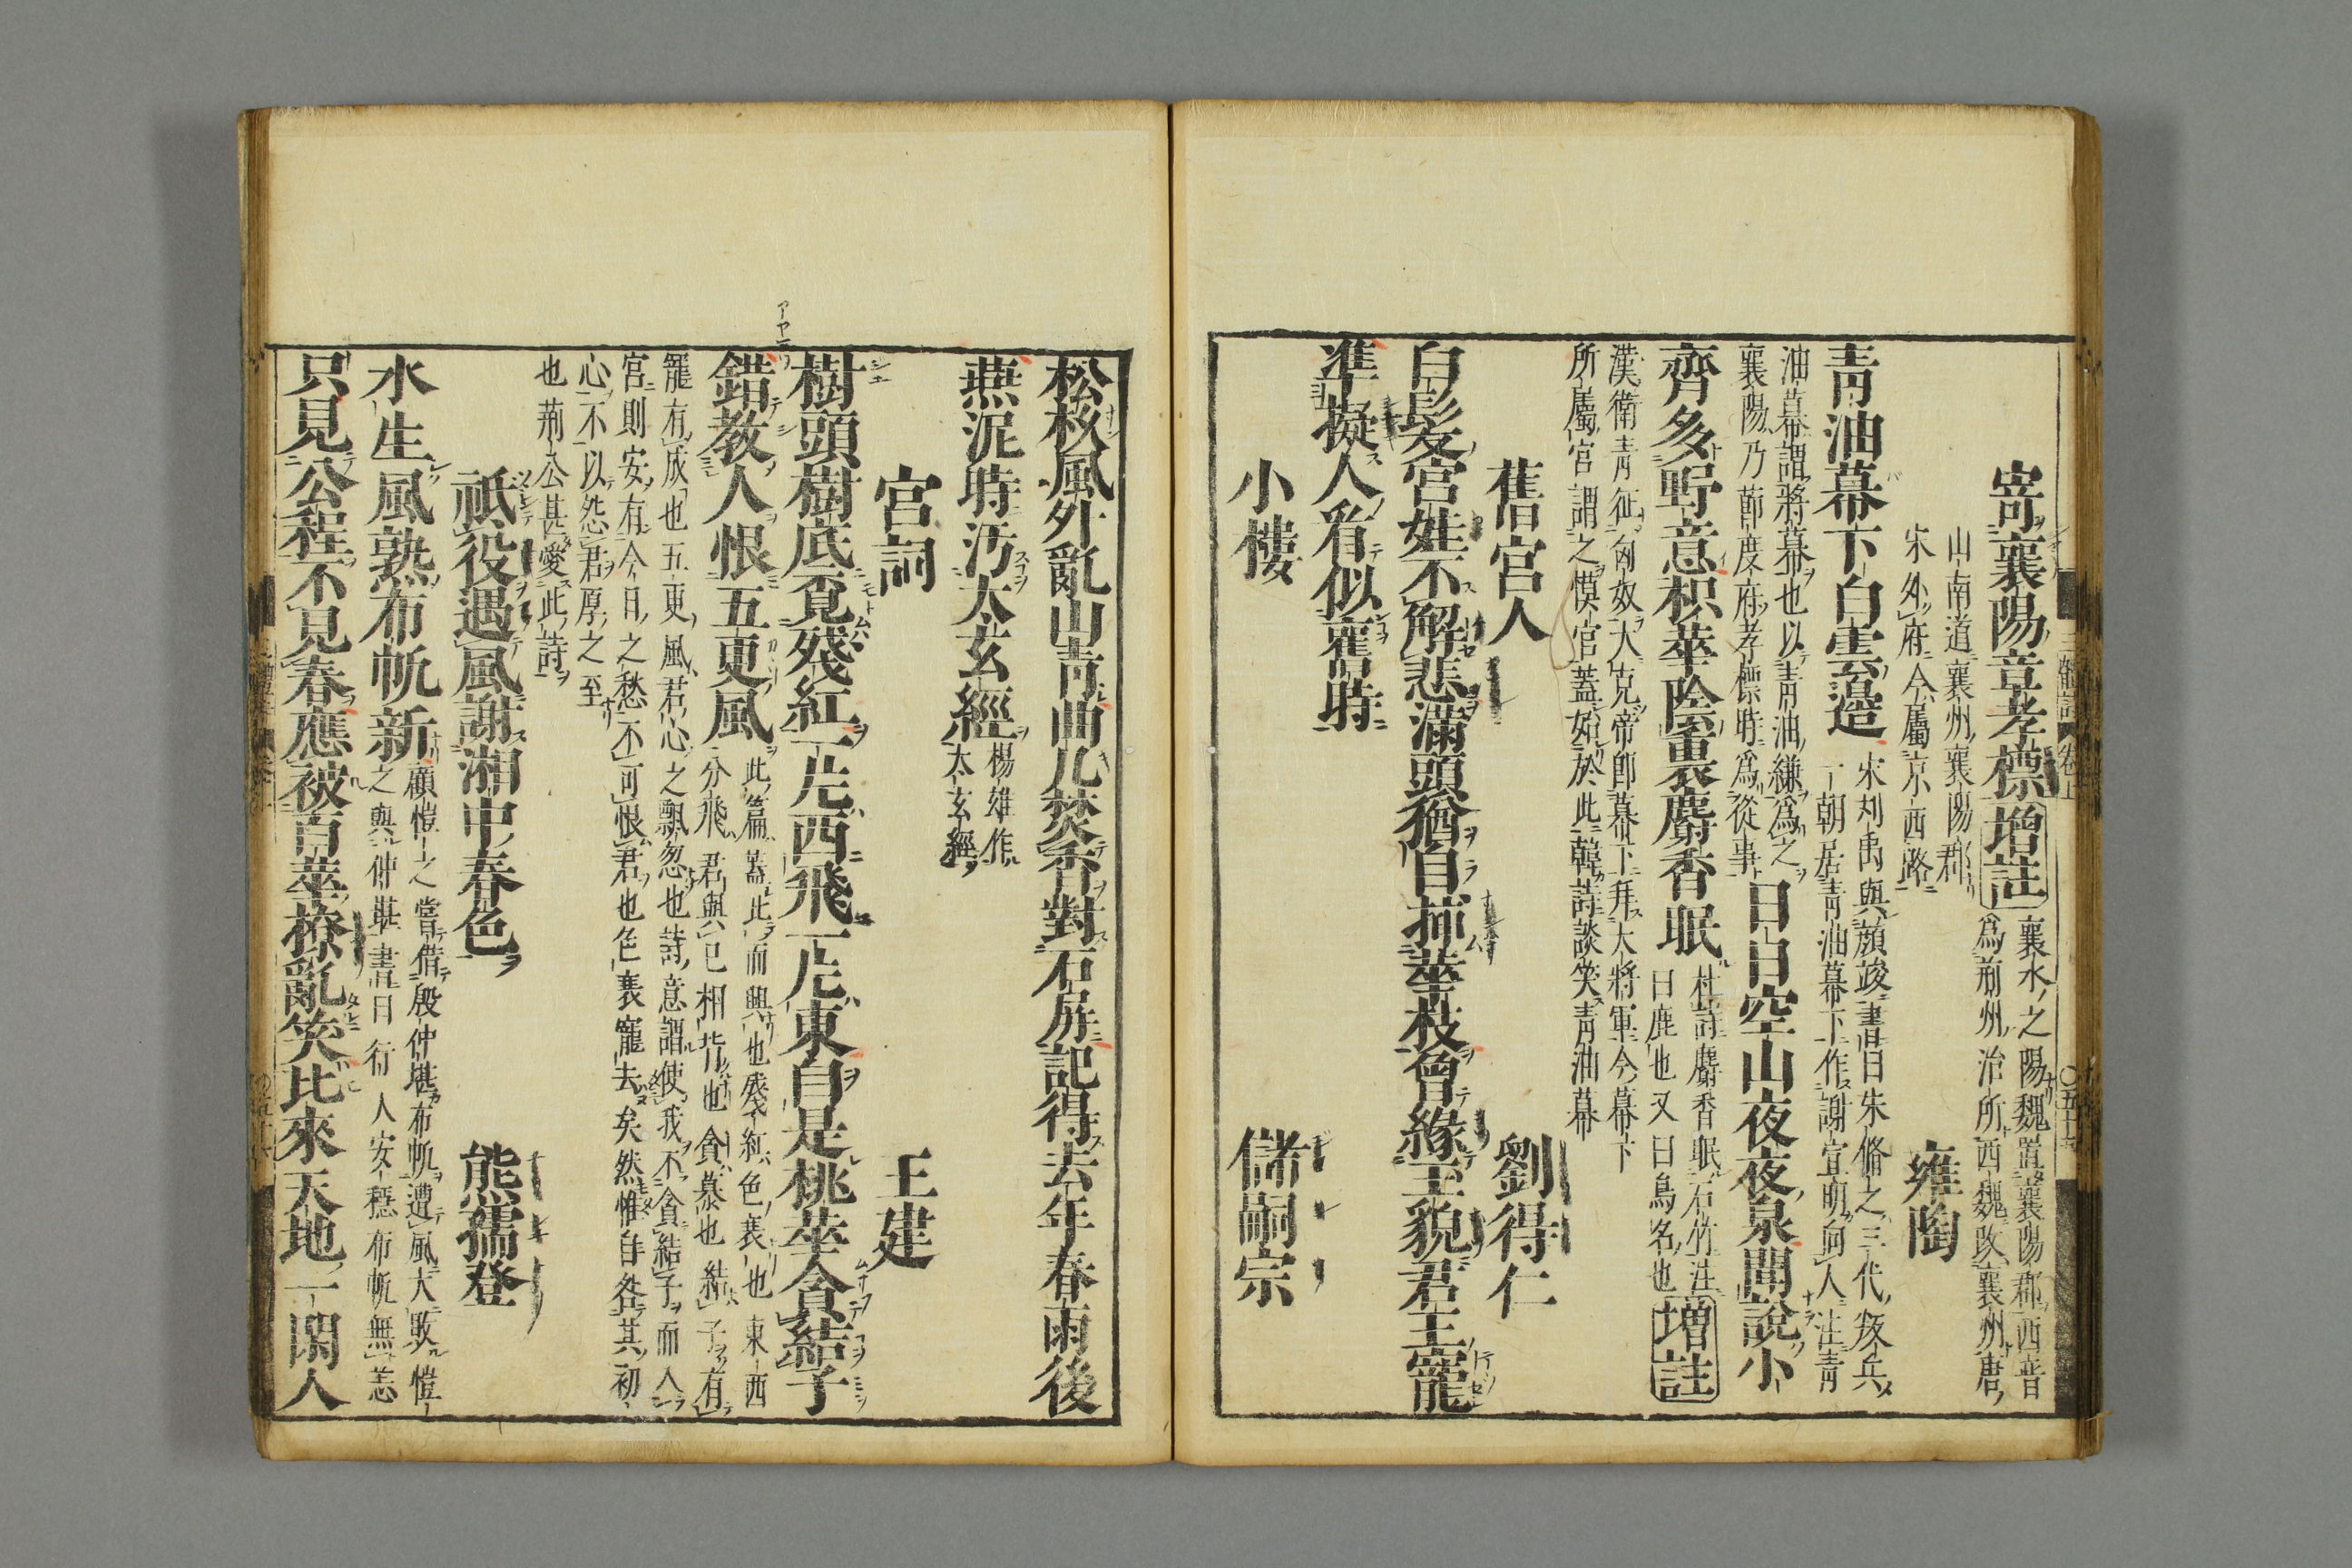 寄襄陽章孝標增註襄水之陽魏置襄陽郡西晉
爲荊州治所西魏改襄州唐
山南道襄州襄陽郡
宋外府今屬京西路
雍陶
青油幕下白雲邉宋刘禹與顔竣書曰朱脩之三代叛兵
一朝居青油幕下作謝宣明向人注青
油幕謂將幕也以青油縑爲之
襄陽乃節度府孝標時爲從事
日日空山夜夜泉聞說小
齊多野意枳花陰裏麝香眠杜詩麝香眠石竹注
曰鹿也又曰鳥名也
增註
漢衛青征匈奴大克帝卽幕下拜大將軍今幕下
所屬官謂之幙官蓋始於此韓詩談笑青油幕
舊宮人
劉得仁
白髮宮娃不解悲滿頭猶自插花枝曾緣玉貌君王寵
準擬人看似舊時
小樓
儲嗣宗
松枝風外亂山青曲几焚香對石屏記得去年春雨後
燕泥時汚太玄經楊雄作
太玄經
宮詞
王建
樹頭樹底覓殘紅一片西飛一片東自是桃花貪結子
錯教人恨五更風此篇蓋此而興也殘紅色衰也東西
分飛君與己相背也貪慕也結子有
寵有成也五更風君心之飄忽也詩意謂使我不貪結子而入
宮則安有今日之愁不可恨君也色衰寵去矣然惟自咎其初
心不以怨君厚之至
也荊公甚愛此詩
祗役遇風謝湘中春色
熊孺登
水生風熟布帆新顧愷之嘗借殷仲堪布帆遭風大敗愷
之與仲堪書曰行人安穩布帆無恙
只見公程不見春應被百花撩亂笑比來天地一閑人